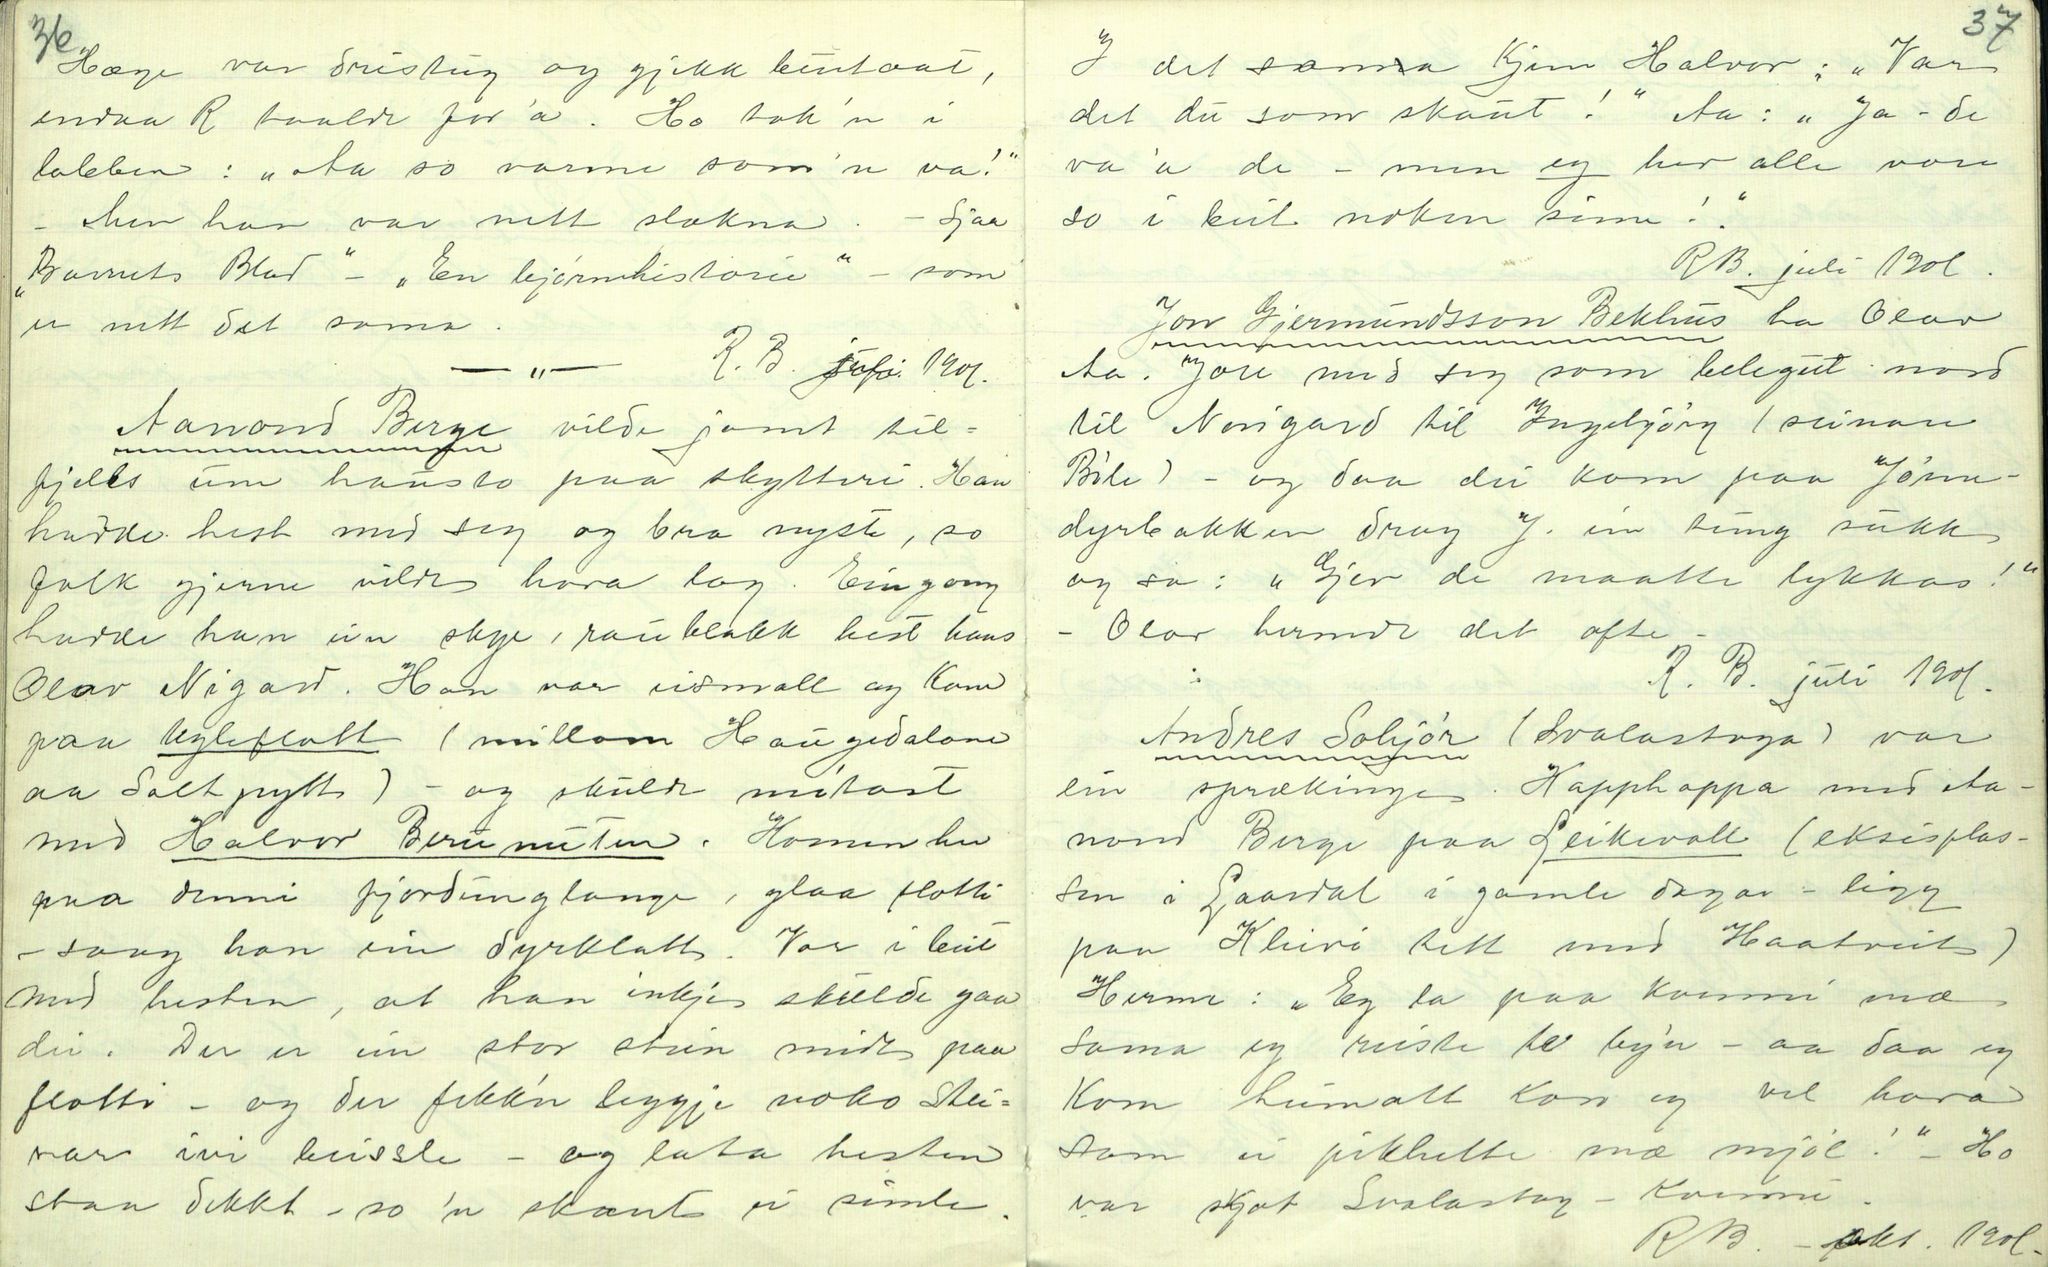 36
Hæge var dristug og gjekk beintaat,
endaa R taalde for'a. Ho tok'n i
labben: „Aa so varme som'n va!"
- Men han var nett slokna. - Sjaa
„Barnets Blad" - „En bjørnehistorie" - som
er nett det sama.
— „ — R. B. juli 1901.
Aanond Berge vilde jamt til=
fjells um hausto paa skytteri. Han
hadde hest med seg og bra nyste, so
folk gjerne vilde hava lag. Eingong
hadde han ein skye, raublakk hest hans
Olav Nigard. Han var eismall og kom
paa Ugleflott (millom Haugedalane
aa Saltpytt) - og skulde møtast
med Halvor Berunuten. Komen her
paa denni fjordunglange, glaa flotti
- saag han ein dyrklatt. Var i beit
med hesten, at han inkje skulde gaa
dei. Der er ein stor stein midt paa
flotti - og der fekk'n leggje noko stei=
nar ivi beissle - og lata hesten
staa dekkt - so 'n skaut ei simle.
37
I det sama kjem Halvor: „Var
det du som skaut!" Aa: „Ja - de
va 'a de - men eg her alle vore
so i beit noken sinne!"
RB. juli 1901.
Jon Gjermundsson Bekhus ha Olav
Aa. Jore med seg som belegut nord
til Norigard til Ingebjörg (seinare
Böle) - og daa dei kom paa Jönn-
dyrbakken drog J. ein tung sukk
og sa: „Gjev de maatte lykkas!"
- Olav hermde det ofte -
R. B. juli 1901.
Andres Sobjör (Svalastoga) var
ein sprækinge. Kapphoppa med Aa-
nond Berge paa Leikvoll (eksisplas-
sen i Gaardal i gamle dagar - ligg
paa Kleivi tett med Haatveit)
Herme: „Eg la paa kvenni mæ
sama eg reiste te by'n - aa daa eg
kom heimatt kan eg vel hava
som ei pikhette mæ mjöl!" - Ho
var skjot Svalastog - kvenni.
RB. - okt. 1901.